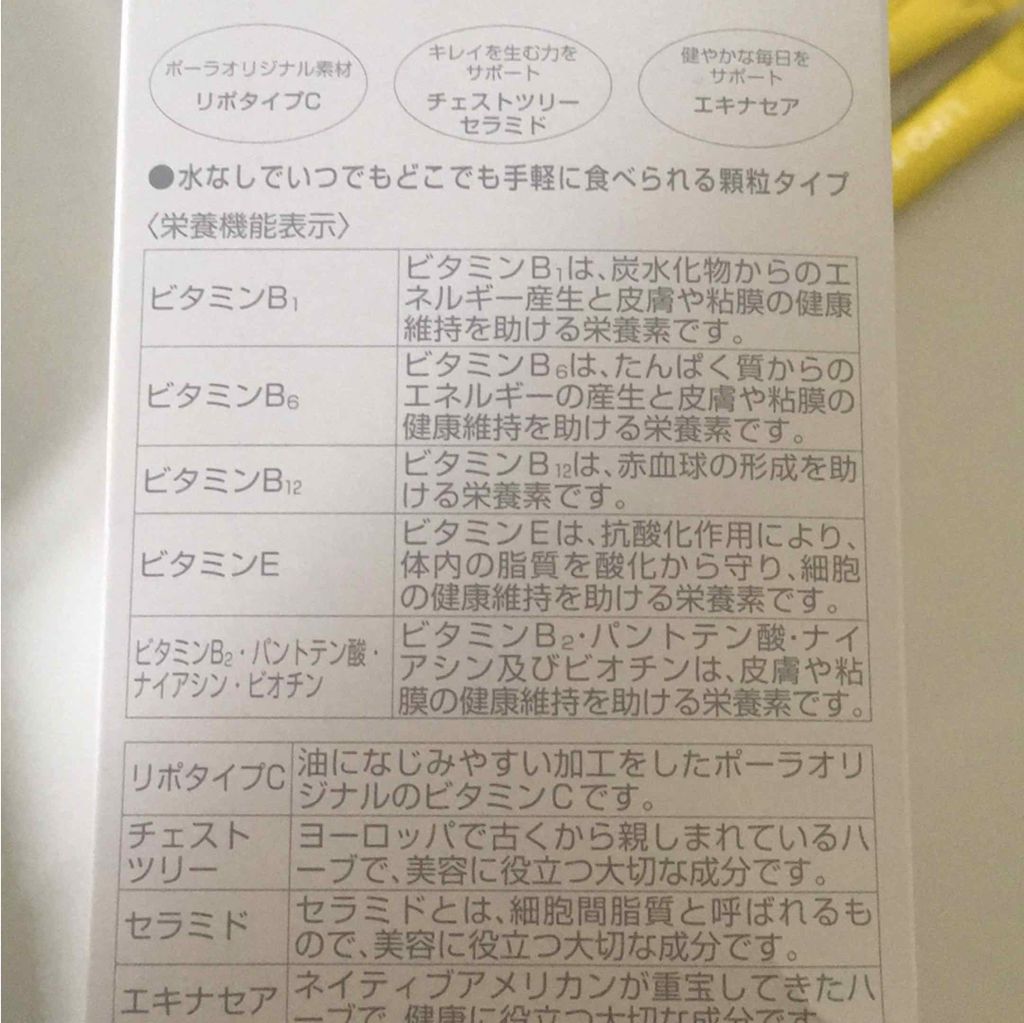 ポーラオリジナル素材
リポタイプC
キレイを生む力を
サポート
チェストツリー
セラミド
健やかな毎日を
サポート
エキナセア
●水なしでいつでもどこでも手軽に食べられる顆粒タイプ
〈栄養機能表示〉
ビタミンB₁
ビタミンB₁は、炭水化物からのエ
ネルギー産生と皮膚や粘膜の健康
維持を助ける栄養素です。
ビタミンB₆
ビタミンB₆は、たんぱく質からの
エネルギーの産生と皮膚や粘膜の
健康維持を助ける栄養素です。
ビタミンB₁₂
ビタミンB₁₂は、赤血球の形成を助
ける栄養素です。
ビタミンE
ビタミンEは、抗酸化作用により、
体内の脂質を酸化から守り、細胞
の健康維持を助ける栄養素です。
ビタミンB₂・パントテン酸・
ナイアシン・ビオチン
ビタミンB₂・パントテン酸・ナイ
アシン及びビオチンは、皮膚や粘
膜の健康維持を助ける栄養素です。
リポタイプC
油になじみやすい加工をしたポーラオリ
ジナルのビタミンCです。
チェスト
ツリー
ヨーロッパで古くから親しまれているハ
ーブで、美容に役立つ大切な成分です。
セラミド
セラミドとは、細胞間脂質と呼ばれるも
ので、美容に役立つ大切な成分です。
エキナセア
ネイティブアメリカンが重宝してきたハ
ーブで、健康に役立つ大切な成分です。